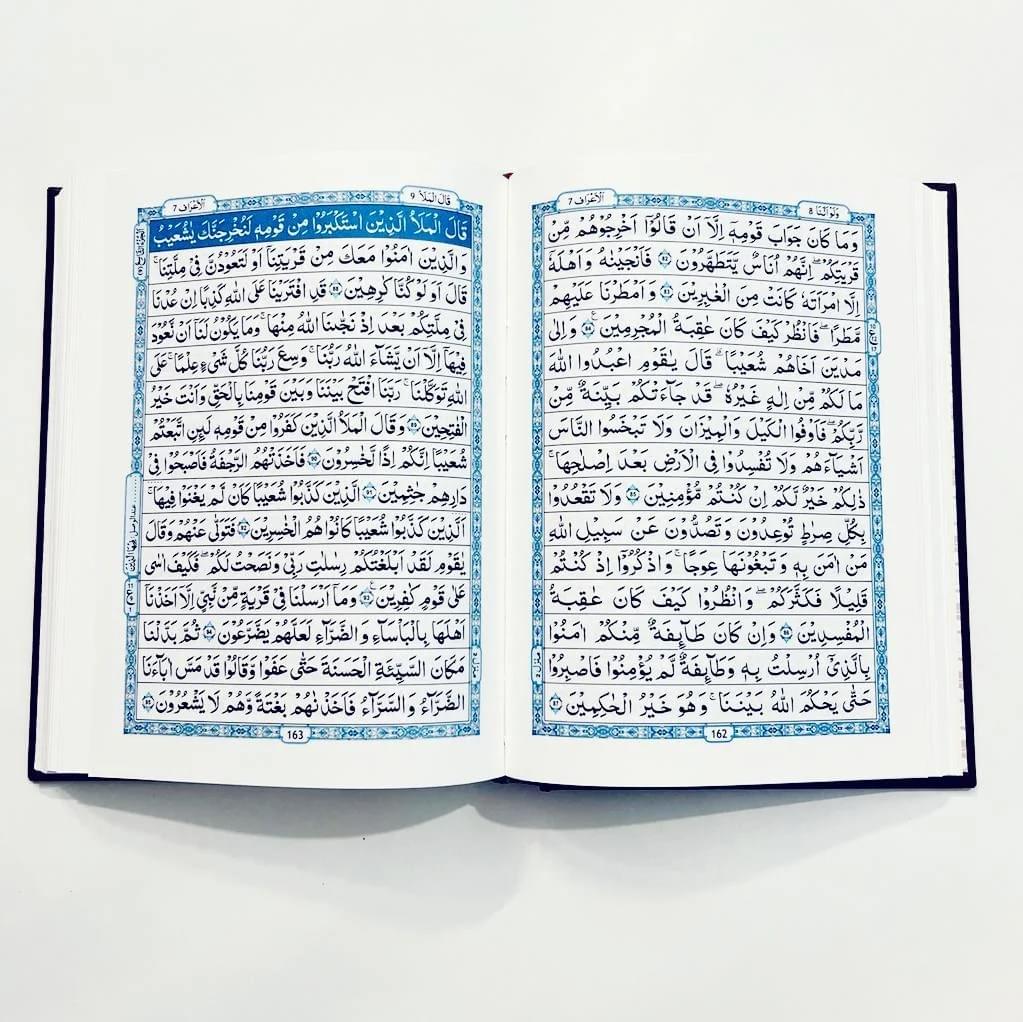 وَلَوْ اَنَّنَا 8
اَلْاَعْرَاف 7
وَمَا كَانَ جَوَابَ قَوْمِهٖۤ اِلَّاۤ اَنْ قَالُوْۤا اَخْرِجُوْهُمْ مِّنْ
قَرْيَتِكُمْ ۖ اِنَّهُمْ اُنَاسٌ يَّتَطَهَّرُوْنَ ۝82 فَاَنْجَيْنٰهُ وَ اَهْلَهٗۤ
اِلَّا امْرَاَتَهٗ كَانَتْ مِنَ الْغٰبِرِيْنَ ۝83 وَ اَمْطَرْنَا عَلَيْهِمْ
مَّطَرًا ۖ فَانْظُرْ كَيْفَ كَانَ عَاقِبَةُ الْمُجْرِمِيْنَ ۝84 ع وَ اِلٰى
مَدْيَنَ اَخَاهُمْ شُعَيْبًا ۗ قَالَ يٰقَوْمِ اعْبُدُوا اللّٰهَ
مَا لَكُمْ مِّنْ اِلٰهٍ غَيْرُهٗ ۖ قَدْ جَآءَتْكُمْ بَيِّنَةٌ مِّنْ
رَّبِّكُمْ ۖ فَاَوْفُوا الْكَيْلَ وَالْمِيْزَانَ وَلَا تَبْخَسُوا النَّاسَ
اَشْيَآءَهُمْ وَلَا تُفْسِدُوْا فِى الْاَرْضِ بَعْدَ اِصْلَاحِهَا ۚ
ذٰلِكُمْ خَيْرٌ لَّكُمْ اِنْ كُنْتُمْ مُّؤْمِنِيْنَ ۝85 وَلَا تَقْعُدُوْا
بِكُلِّ صِرَاطٍ تُوْعِدُوْنَ وَتَصُدُّوْنَ عَنْ سَبِيْلِ اللّٰهِ
مَنْ اٰمَنَ بِهٖ وَ تَبْغُوْنَهَا عِوَجًا ۚ وَ اذْكُرُوْۤا اِذْ كُنْتُمْ
قَلِيْلًا فَكَثَّرَكُمْ ۖ وَانْظُرُوْا كَيْفَ كَانَ عَاقِبَةُ
الْمُفْسِدِيْنَ ۝86 وَاِنْ كَانَ طَآئِفَةٌ مِّنْكُمْ اٰمَنُوْا
بِالَّذِيْۤ اُرْسِلْتُ بِهٖ وَطَآئِفَةٌ لَّمْ يُؤْمِنُوْا فَاصْبِرُوْا
حَتّٰى يَحْكُمَ اللّٰهُ بَيْنَنَا ۚ وَهُوَ خَيْرُ الْحٰكِمِيْنَ ۝87
162
قَالَ الْمَلَاُ 9
اَلْاَعْرَاف 7
قَالَ الْمَلَاُ الَّذِيْنَ اسْتَكْبَرُوْا مِنْ قَوْمِهٖ لَنُخْرِجَنَّكَ يٰشُعَيْبُ
وَالَّذِيْنَ اٰمَنُوْا مَعَكَ مِنْ قَرْيَتِنَاۤ اَوْ لَتَعُوْدُنَّ فِيْ مِلَّتِنَا ۚ
قَالَ اَوَ لَوْ كُنَّا كٰرِهِيْنَ ۝88 قَدِ افْتَرَيْنَا عَلَى اللّٰهِ كَذِبًا اِنْ عُدْنَا
فِيْ مِلَّتِكُمْ بَعْدَ اِذْ نَجّٰىنَا اللّٰهُ مِنْهَا ۚ وَمَا يَكُوْنُ لَنَاۤ اَنْ نَّعُوْدَ
فِيْهَاۤ اِلَّاۤ اَنْ يَّشَآءَ اللّٰهُ رَبُّنَا ۚ وَسِعَ رَبُّنَا كُلَّ شَيْءٍ عِلْمًا ۚ عَلَى
اللّٰهِ تَوَكَّلْنَا ۚ رَبَّنَا افْتَحْ بَيْنَنَا وَبَيْنَ قَوْمِنَا بِالْحَقِّ وَاَنْتَ خَيْرُ
الْفٰتِحِيْنَ ۝89 وَقَالَ الْمَلَاُ الَّذِيْنَ كَفَرُوْا مِنْ قَوْمِهٖ لَئِنِ اتَّبَعْتُمْ
شُعَيْبًا اِنَّكُمْ اِذًا لَّخٰسِرُوْنَ ۝90 فَاَخَذَتْهُمُ الرَّجْفَةُ فَاَصْبَحُوْا فِيْ
دَارِهِمْ جٰثِمِيْنَ ۝91 الَّذِيْنَ كَذَّبُوْا شُعَيْبًا كَاَنْ لَّمْ يَغْنَوْا فِيْهَا ۚ
اَلَّذِيْنَ كَذَّبُوْا شُعَيْبًا كَانُوْا هُمُ الْخٰسِرِيْنَ ۝92 فَتَوَلّٰى عَنْهُمْ وَقَالَ
يٰقَوْمِ لَقَدْ اَبْلَغْتُكُمْ رِسٰلٰتِ رَبِّيْ وَنَصَحْتُ لَكُمْ ۖ فَكَيْفَ اٰسٰى
عَلٰى قَوْمٍ كٰفِرِيْنَ ۝93 وَمَاۤ اَرْسَلْنَا فِيْ قَرْيَةٍ مِّنْ نَّبِيٍّ اِلَّاۤ اَخَذْنَاۤ
اَهْلَهَا بِالْبَاْسَآءِ وَ الضَّرَّآءِ لَعَلَّهُمْ يَضَّرَّعُوْنَ ۝94 ثُمَّ بَدَّلْنَا
مَكَانَ السَّيِّئَةِ الْحَسَنَةَ حَتّٰى عَفَوْا وَّقَالُوْا قَدْ مَسَّ اٰبَآءَنَا
الضَّرَّآءُ وَ السَّرَّآءُ فَاَخَذْنٰهُمْ بَغْتَةً وَّهُمْ لَا يَشْعُرُوْنَ ۝95
163